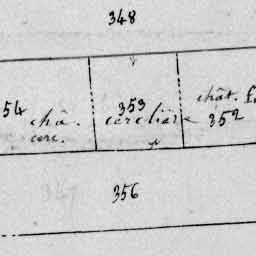 348
54 châ. cere.
353 cerclière
chât. f
352
356